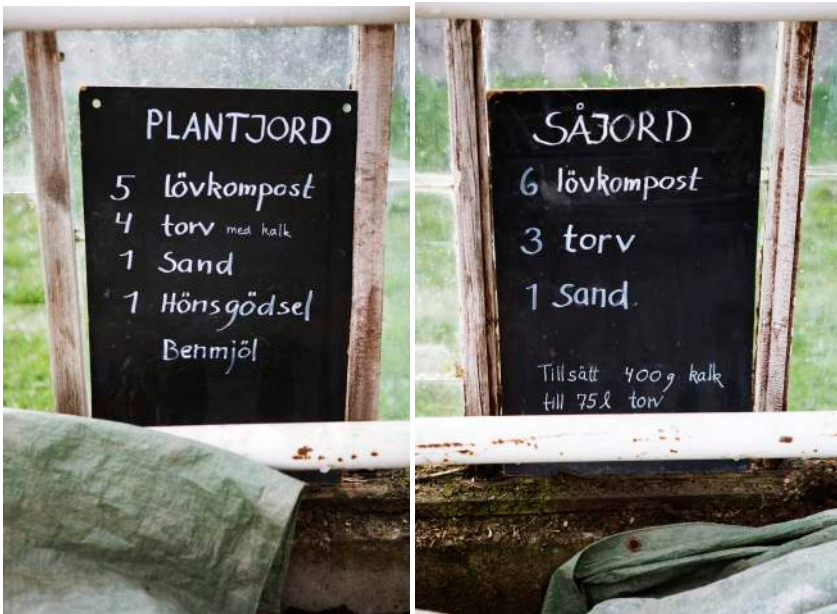 PLANTJORD
5 lövkompost
4 torv med kalk
1 Sand
1 Hönsgödsel
Benmjöl
SÅJORD
6 lövkompost
3 torv
1 Sand
Tillsätt 400g kalk
till 75l torv